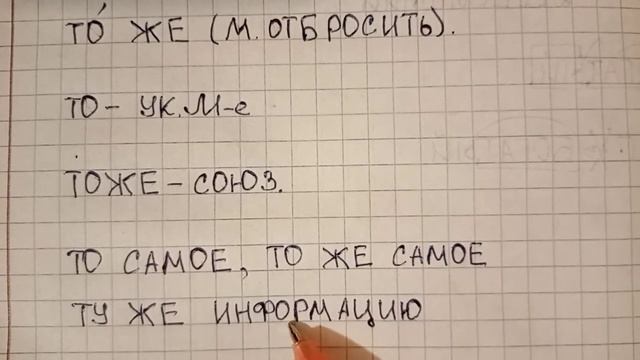 ТО́ ЖЕ (М. ОТБРОСИТЬ).
ТО – УК. М-е
ТОЖЕ – СОЮЗ.
ТО САМОЕ, ТО ЖЕ САМОЕ
ТУ ЖЕ ИНФОРМАЦИЮ